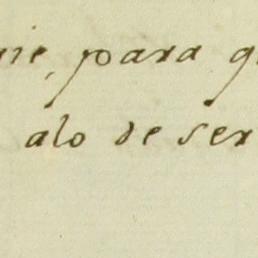 para
alo de ser